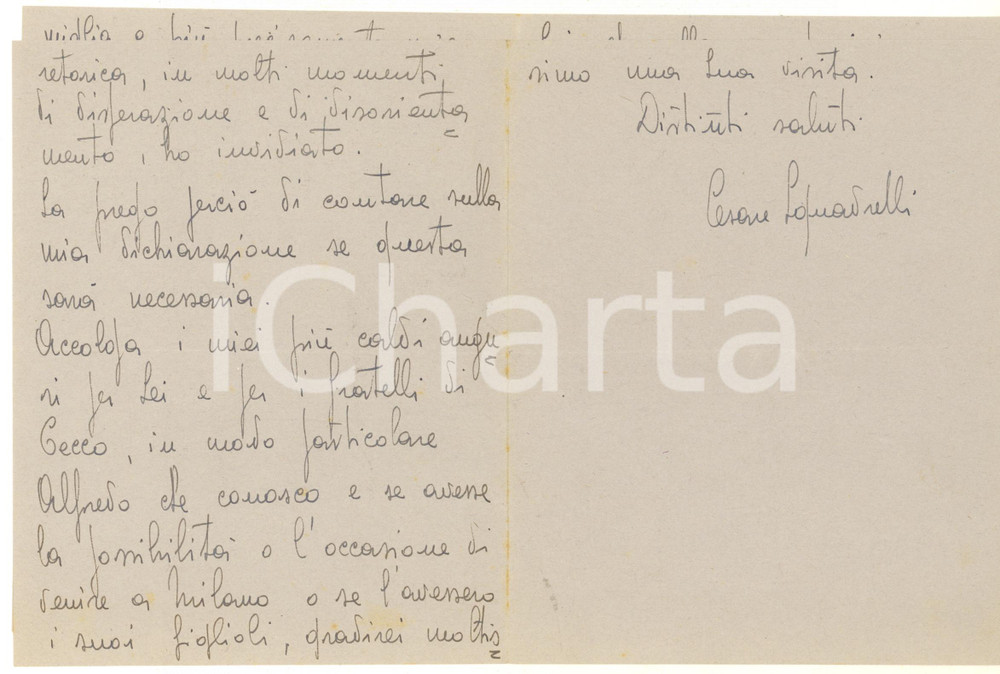 retorica, in molti momenti
di disperazione e di disorienta
mento, ho invidiato.
La prego perciò di contare sulla
mia dichiarazione se questa
sarà necessaria.
Accolga i miei più caldi augu
ri per Lei e per i fratelli di
Cecco, in modo particolare
Alfredo che conosco e se avesse
la possibilità o l'occasione di
venire a Milano o se l'avessero
i suoi figlioli, gradirei moltis
simo una Sua visita.
Distinti saluti
Cesare Squadrelli
iCharta